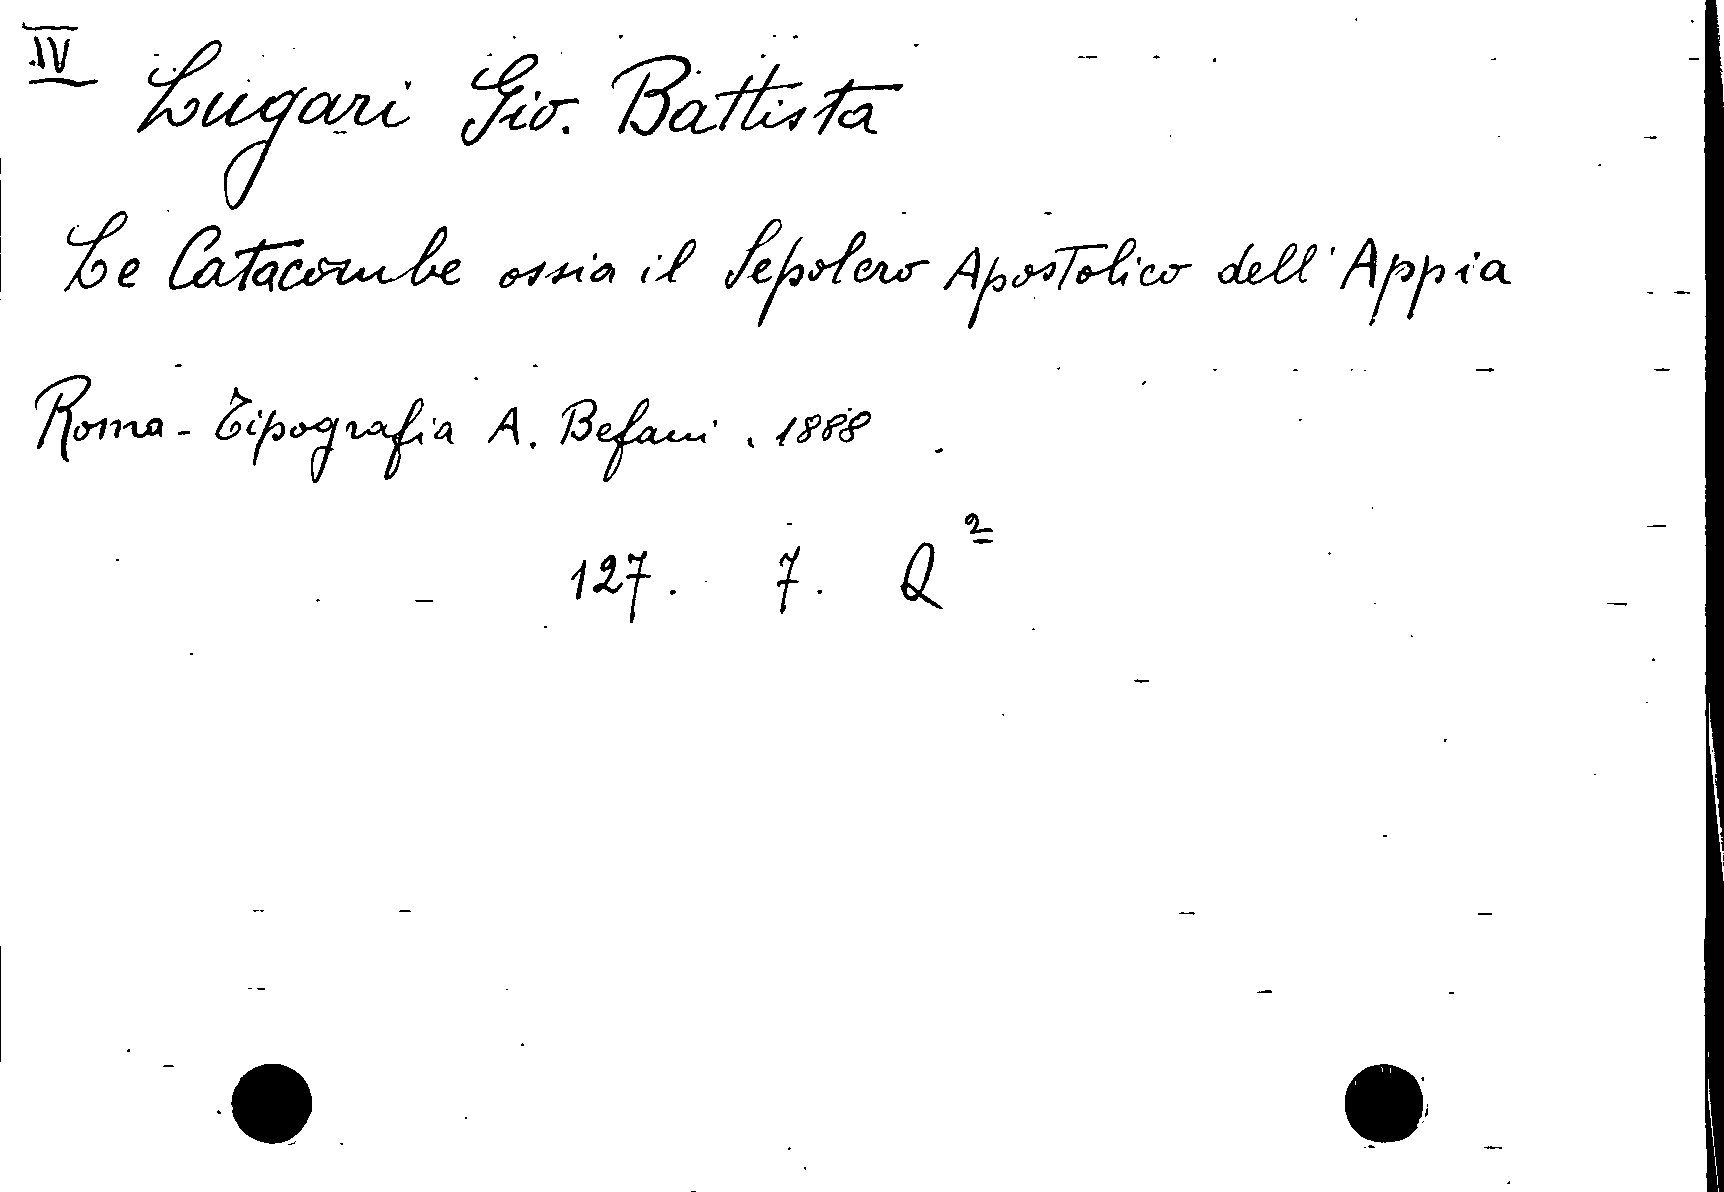 IV
Lugari Gio. Battista
Le Catacombe ossia il Sepolcro Apostolico dell'Appia
Roma - Tipografia A. Befani. 1888
127. 7. Q 2